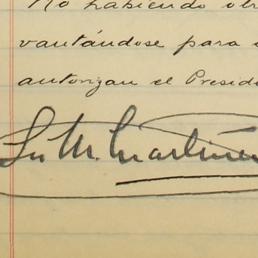 No habiendo otr
vantándose para
autorizan el Presid
M. Martínez